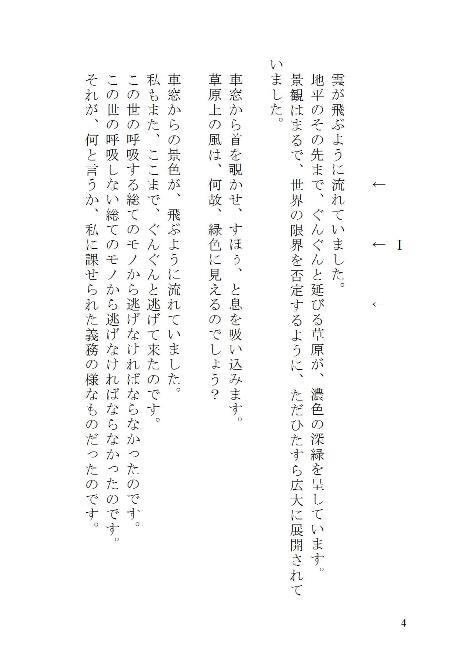 I
← ← ←
雲が飛ぶように流れていました。
地平のその先まで、ぐんぐんと延びる草原が、濃色の深緑を呈しています。
景観はまるで、世界の限界を否定するように、ただひたすら広大に展開されて
いました。
車窓から首を覗かせ、すほぅ、と息を吸い込みます。
草原上の風は、何故、緑色に見えるのでしょう？
車窓からの景色が、飛ぶように流れていました。
私もまた、ここまで、ぐんぐんと逃げて来たのです。
この世の呼吸する総てのモノから逃げなければならなかったのです。
この世の呼吸しない総てのモノから逃げなければならなかったのです。
それが、何と言うか、私に課せられた義務の様なものだったのです。
4